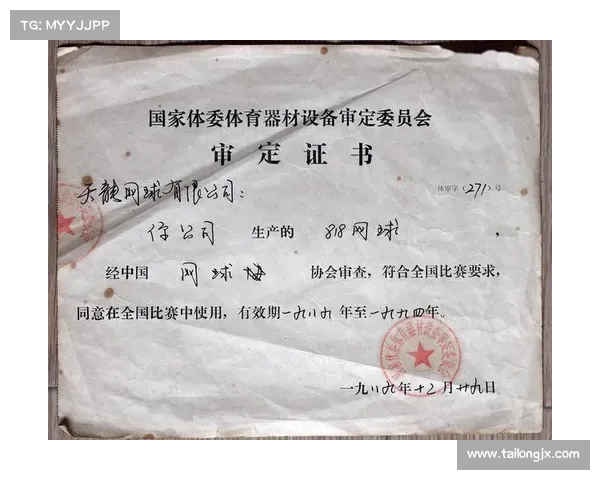 TG: MYYJJPP
国家体委体育器材设备审定委员会
审定证书
天龍网球有限公司：
体审字（271）号
你公司 生产的 818网球，
经中国 网球 协会审查，符合全国比赛要求，
同意在全国比赛中使用，有效期一九八九年至一九九四年。
国家体委体育器材设备审定委员会
一九八九年十二月廿九日
www.tailongjx.com